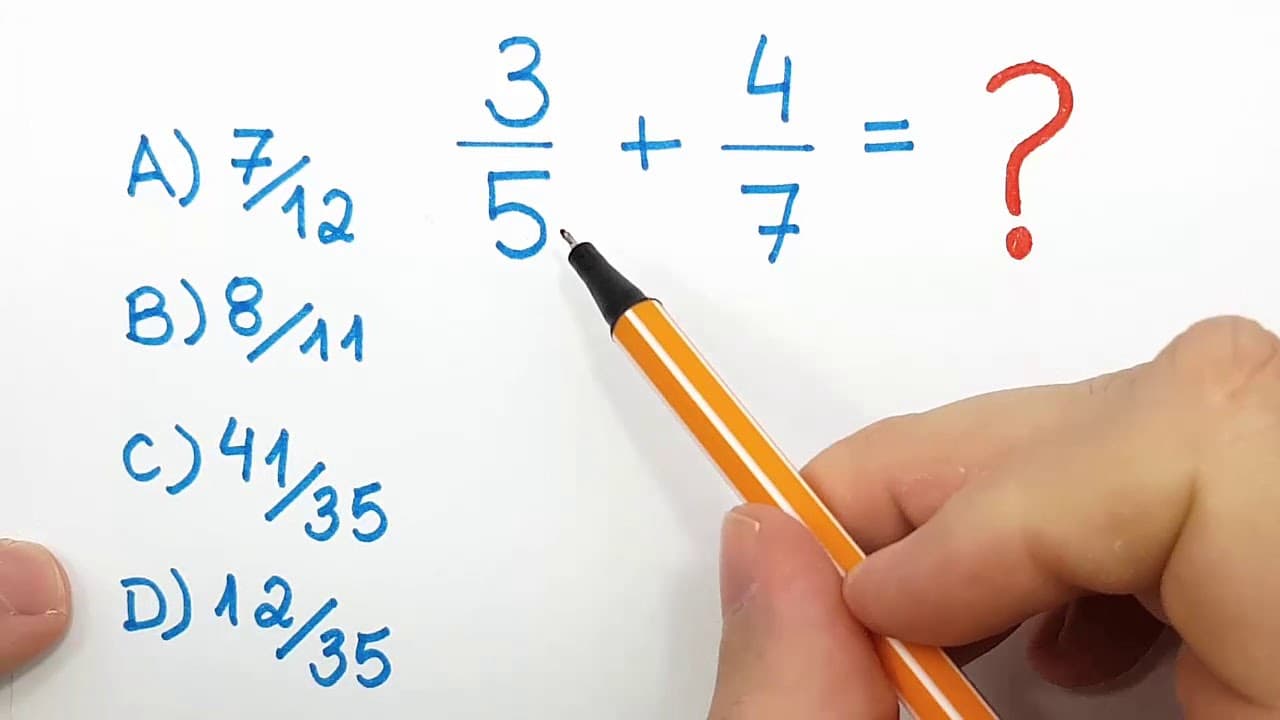 3/5 + 4/7 = ?
A) 7/12
B) 8/11
C) 41/35
D) 12/35